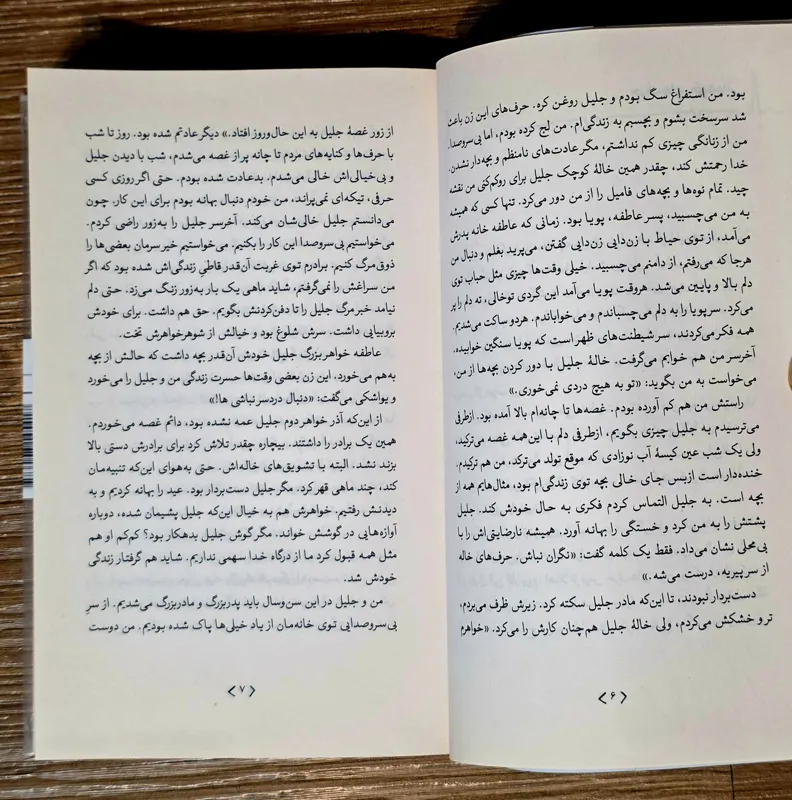 بود. من استفراغ سگ بودم و جلیل روغن کره. حرف‌های این زن باعث
شد سرسخت بشوم و بچسبم به زندگی‌ام. من لج کرده بودم، اما بی‌سروصدا.
من از زنانگی چیزی کم نداشتم، مگر عادت‌های نامنظم و بچه‌دار نشدن.
خدا رحمتش کند، چقدر همین خالهٔ کوچک جلیل برای روکم‌کنی من نقشه
چید. تمام نوه‌ها و بچه‌های فامیل را از من دور می‌کرد. تنها کسی که همیشه
به من می‌چسبید، پسر عاطفه، پویا بود. زمانی که عاطفه خانه پدرش
می‌آمد، از توی حیاط با زن‌دایی زن‌دایی گفتن، می‌پرید بغلم و دنبال من
هرجا که می‌رفتم، از دامنم می‌چسبید. خیلی وقت‌ها چیزی مثل حباب توی
دلم بالا و پایین می‌شد. هروقت پویا می‌آمد این گردی توخالی، ته دلم را پر
می‌کرد. سر پویا را به دلم می‌چسباندم و می‌خواباندم. هردو ساکت می‌شدیم.
همه فکر می‌کردند، سر شیطنت‌های ظهر است که پویا سنگین خوابیده.
آخرسر من هم خوابم می‌گرفت. خالهٔ جلیل با دور کردن بچه‌ها از من،
می‌خواست به من بگوید: «تو به هیچ دردی نمی‌خوری.»
راستش من هم کم آورده بودم. غصه‌ها تا چانه‌ام بالا آمده بود. ازطرفی
می‌ترسیدم به جلیل چیزی بگویم، ازطرفی دلم با این‌همه غصه می‌ترکید،
ولی یک شب عین کیسهٔ آب نوزادی که موقع تولد می‌ترکد، من هم ترکیدم.
خنده‌دار است ازبس جای خالی بچه توی زندگی‌ام بود، مثال‌هایم همه از
بچه است. به جلیل التماس کردم فکری به حال خودش کند. جلیل
پشتش را به من کرد و خستگی را بهانه آورد. همیشه نارضایتی‌اش را با
بی‌محلی نشان می‌داد. فقط یک کلمه گفت: «نگران نباش. حرف‌های خاله
از سر پیریه، درست می‌شه.»
دست‌بردار نبودند، تا این‌که مادر جلیل سکته کرد. زیرش ظرف می‌بردم،
تر و خشکش می‌کردم، ولی خالهٔ جلیل هم‌چنان کارش را می‌کرد. «خواهرم
‹۶›
از زور غصهٔ جلیل به این حال‌وروز افتاد.» دیگر عادتم شده بود. روز تا شب
با حرف‌ها و کنایه‌های مردم تا چانه پر از غصه می‌شدم، شب با دیدن جلیل
و بی‌خیالی‌اش خالی می‌شدم. بدعادت شده بودم. حتی اگر روزی کسی
حرفی، تیکه‌ای نمی‌پراند، من خودم دنبال بهانه بودم برای این کار. چون
می‌دانستم جلیل خالی‌شان می‌کند. آخرسر جلیل را به‌زور راضی کردم.
می‌خواستیم بی‌سروصدا این کار را بکنیم. می‌خواستیم خیر سرمان بعضی‌ها را
ذوق‌مرگ کنیم. برادرم توی غربت آن‌قدر قاطی زندگی‌اش شده بود که اگر
من سراغش را نمی‌گرفتم، شاید ماهی یک بار به‌زور زنگ می‌زد. حتی دلم
نیامد خبر مرگ جلیل را تا دفن‌کردنش بگویم. حق هم داشت. برای خودش
بروبیایی داشت. سرش شلوغ بود و خیالش از شوهرخواهرش تخت.
عاطفه خواهر بزرگ جلیل خودش آن‌قدر بچه داشت که حالش از بچه
به‌هم می‌خورد. این زن بعضی وقت‌ها حسرت زندگی من و جلیل را می‌خورد
و یواشکی می‌گفت: «دنبال دردسر نباشی ها!»
از این‌که آذر خواهر دوم جلیل عمه نشده بود، دائم غصه می‌خوردم.
همین یک برادر را داشتند. بیچاره چقدر تلاش کرد برای برادرش دستی بالا
بزند نشد. البته با تشویق‌های خاله‌اش. حتی به‌هوای این‌که تنبیه‌مان
کند، چند ماهی قهر کرد. مگر جلیل دست‌بردار بود. عید را بهانه کردیم و به
دیدنش رفتیم. خواهرش هم به خیال این‌که جلیل پشیمان شده، دوباره
آوازهایی در گوشش خواند. مگر گوش جلیل بدهکار بود؟ کم‌کم او هم
مثل همه قبول کرد ما از درگاه خدا سهمی نداریم. شاید هم گرفتار زندگی
خودش شد.
من و جلیل در این سن‌وسال باید پدربزرگ و مادربزرگ می‌شدیم. از سرِ
بی‌سروصدایی توی خانه‌مان از یاد خیلی‌ها پاک شده بودیم. من دوست
‹۷›